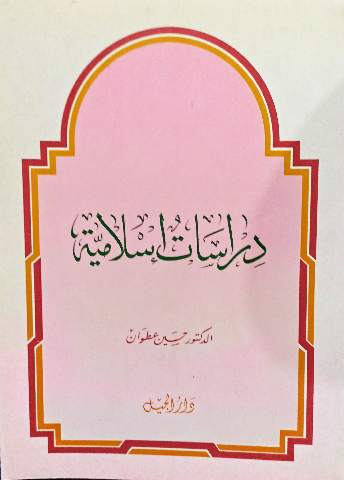 دراسات إسلامية
الدكتور حسين عطوان
دار الجيل